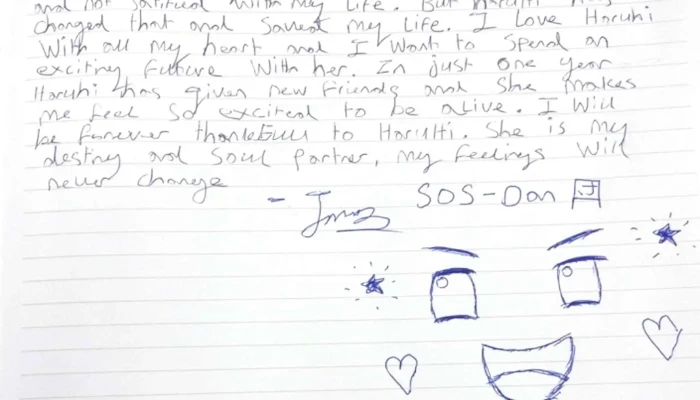 and not satified with my life. But Haruhi has
changed that and saved my life. I love Haruhi
with all my heart and I want to spend an
exciting future with her. In just one year
Haruhi has given new friends and she makes
me feel so excited to be alive. I will
be forever thankfull to Haruhi. She is my
destiny and soul partner, my feelings will
never change
SOS-Dan 団